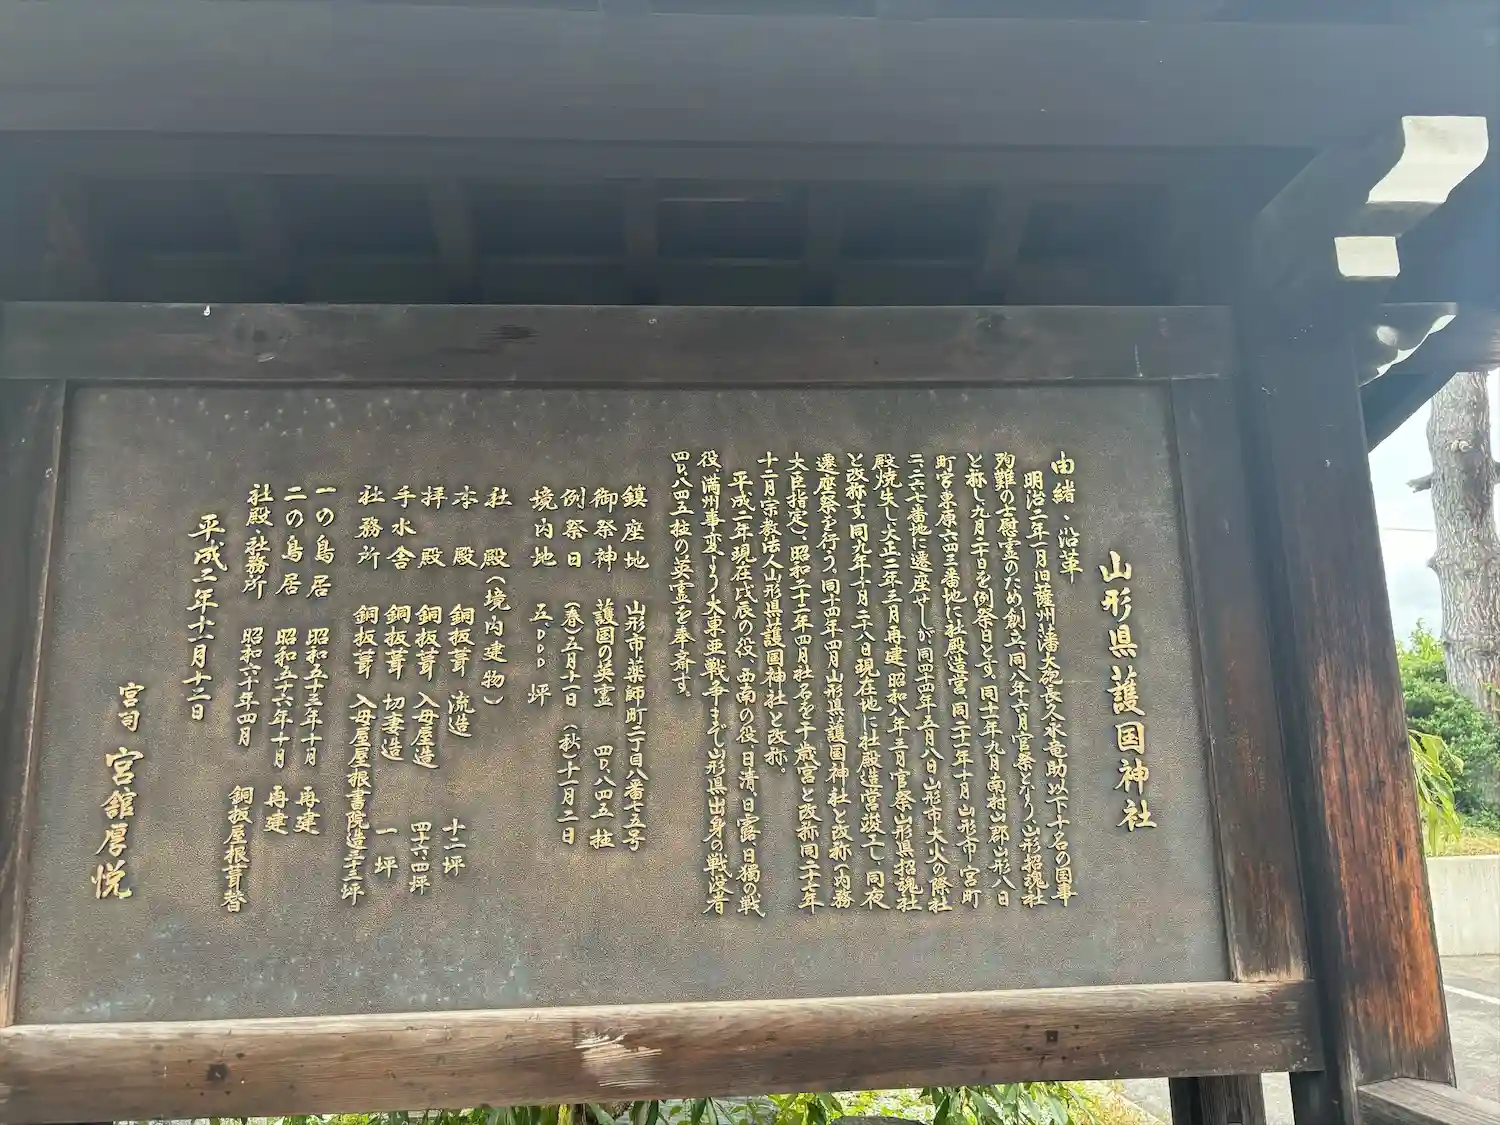 山形県護国神社
由緒・沿革
明治二年一月旧薩州藩大砲長久永竜助以下十名の国事
殉難の士慰霊のため創立、同八年六月官祭となり、山形招魂社
と称し九月二十日を例祭日とす。同十一年九月南村山郡山形八日
町宮東原六四三番地に社殿造営、同二十一年十月山形市宮町
二、二六七番地に遷座せしが同四十四年五月八日山形市大火の際社
殿焼失し大正二年三月再建、昭和八年三月官祭山形県招魂社
と改称す。同九年十月二十八日現在地に社殿造営竣工し、同夜
遷座祭を行う。同十四年四月山形県護国神社と改称(内務
大臣指定)、昭和二十二年四月社名を千歳宮と改称同二十七年
十二月宗教法人山形県護国神社と改称。
平成二年現在戊辰の役、西南の役、日清、日露、日獨の戦
役、満州事変より大東亜戦争まで山形県出身の戦没者
四〇、八四五柱の英霊を奉斎す。
鎮座地 山形市薬師町二丁目八番七五号
御祭神 護国の英霊 四〇、八四五柱
例祭日 (春)五月十一日 (秋)十一月二日
境内地 五、〇〇〇坪
社殿(境内建物)
本殿 銅板葺 流造 十二坪
拝殿 銅板葺 入母屋造 四十六、四坪
手水舎 銅板葺 切妻造 一坪
社務所 銅板葺 入母屋屋根書院造 三十三坪
一の鳥居 昭和五十三年十月 再建
二の鳥居 昭和五十六年十月 再建
社殿・社務所 昭和六十年四月 銅板屋根葺替
平成二年十一月十二日
宮司 宮舘厚悦